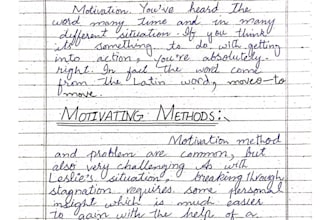 Motivation. You've heard the
word many time and in many
different situation. If you think
its something to do with getting
into action, you're absolutely
right. In fact the word come
from the Latin word, moveo-to
move.
MOTIVATING METHODS:-
Motivation method
and problem are common, but
also very challenging. As with
Leslie's situation, breaking through
stagnation requires some personal
insight which is much easier
to gain with the help of a